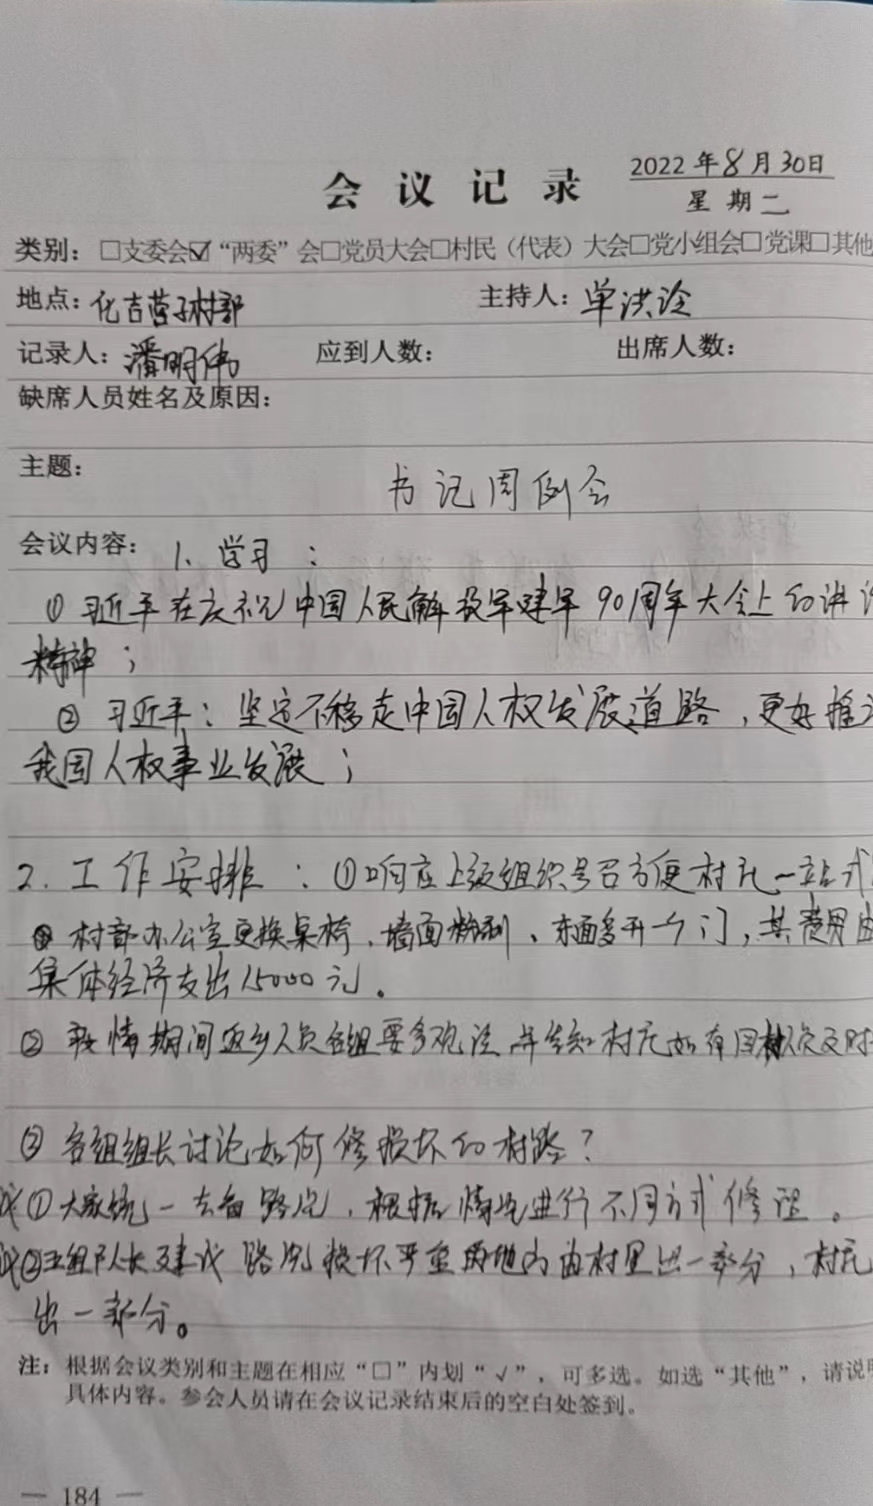 会议记录 2022年8月30日
星期二
类别：□支委会☑“两委”会□党员大会□村民（代表）大会□党小组会□党课□其他
地点：化吉营子村部 主持人：单洪玲
记录人：潘明伟 应到人数： 出席人数：
缺席人员姓名及原因：
主题：
书记周例会
会议内容：1、学习：
①习近平在庆祝中国人民解放军建军90周年大会上的讲话
精神；
②习近平：坚定不移走中国人权发展道路，更好推
我国人权事业发展；
2.工作安排：①响应上级组织号召方便村民一站式
村部办公室更换桌椅、墙面粉刷、东面多开一个门，其费用由
集体经济支出15000元。
②疫情期间返乡人员各组要多 并告知村民如有回村人员及时
③各组组长讨论如何修损坏的村路？
①大家统一去看路况，根据情况进行不同方式修理。
②王组队长建议路况损坏严重的地方由村里出一部分，村民
出一部分。
注：根据会议类别和主题在相应“□”内划“√”，可多选。如选“其他”，请说明
具体内容。参会人员请在会议记录结束后的空白处签到。
— 184 —